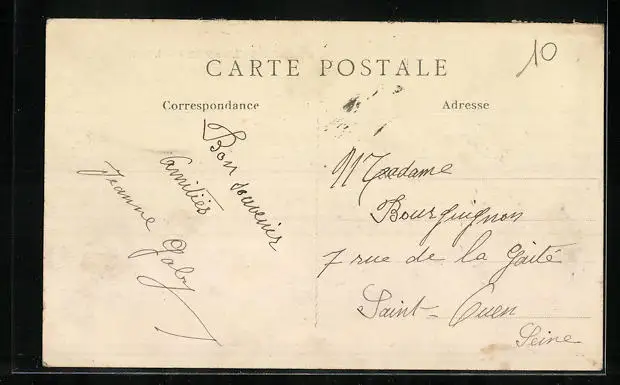 10
CARTE POSTALE
Correspondance
Adresse
Bon souvenir
Amitiés
Jeanne Gaby
Madame
Bourguignon
7 rue de la Gaité
Saint-Ouen
Seine